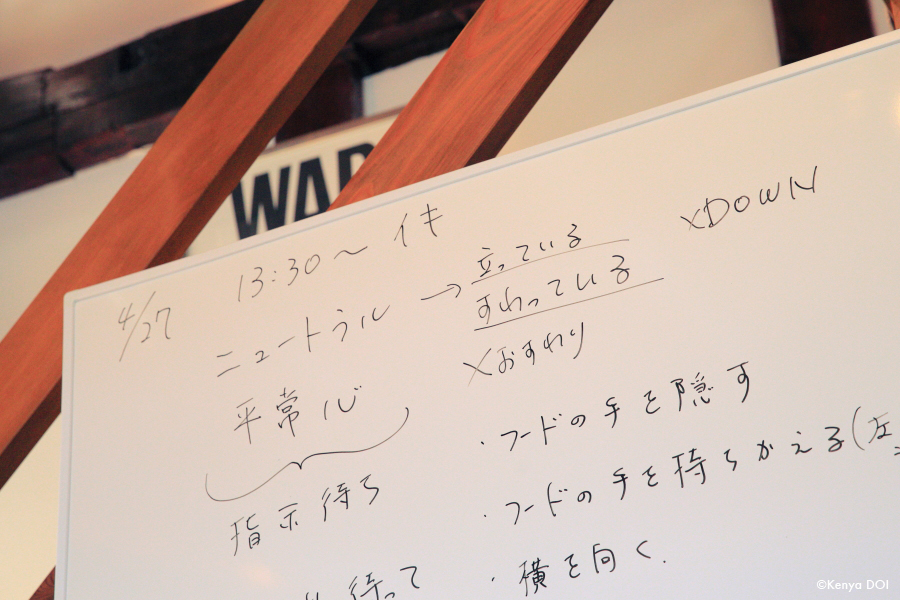 WAD
4/27 13:30〜 イキ
ニュートラル → 立っている ×DOWN
すわっている
×おすわり
平常心
・フードの手を隠す
指示待ち
・フードの手を持ちかえる(左
待って
・横を向く.
©Kenya DOI